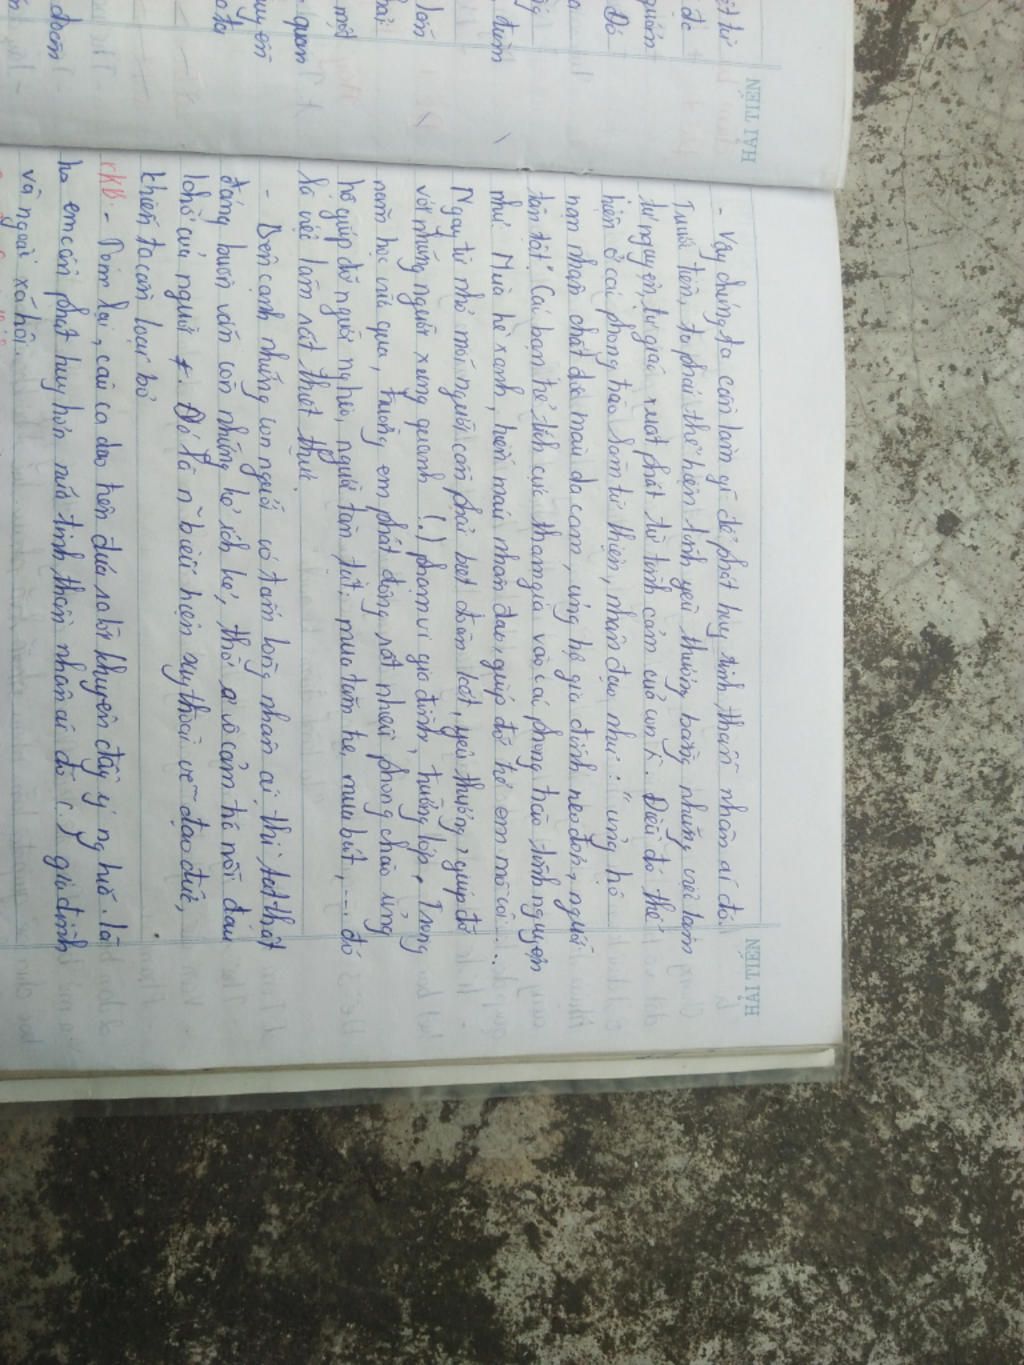 HẢI TIẾN
HẢI TIẾN
- Vậy chúng ta cần làm gì để phát huy tinh thần nhân ái đó.
Trước tiên, ta phải thể hiện tình yêu thương bằng những việc làm
tự nguyện, tự giác xuất phát từ tình cảm của con n~. Điều đó thể
hiện ở các phong trào làm từ thiện, nhân đạo như: "ủng hộ
nạn nhân chất độc màu da cam, ủng hộ gia đình neo đơn, người
tàn tật" Các bạn trẻ tích cực tham gia vào các phong trào tình nguyện
như: Mùa hè xanh, hiến máu nhân đạo, giúp đỡ trẻ em mồ côi...
Ngay từ nhỏ mỗi người cần phải biết đoàn kết, yêu thương, giúp đỡ
với những người xung quanh (.) phạm vi gia đình, trường lớp. Trong
năm học vừa qua, trường em phát động rất nhiều phong chào ủng
hộ giúp đỡ người nghèo, người tàn tật: mua tăm tre, mua bút, .... đó
là việc làm rất thiết thực.
- Bên cạnh những con người có tấm lòng nhân ái thì thật
đáng buồn vẫn còn những kẻ ích kỉ, thờ ơ vô cảm trc nỗi đau
khổ của người #. Đó là n~ biểu hiện suy thoái về đạo đức,
khiến ta cần loại bỏ
*KB: - Tóm lại, câu ca dao trên đưa ra lời khuyên đầy ý nghĩa. Là
hs em cần phát huy hơn nữa tinh thần nhân ái đó (.) gia đình
và ngoài xã hội.